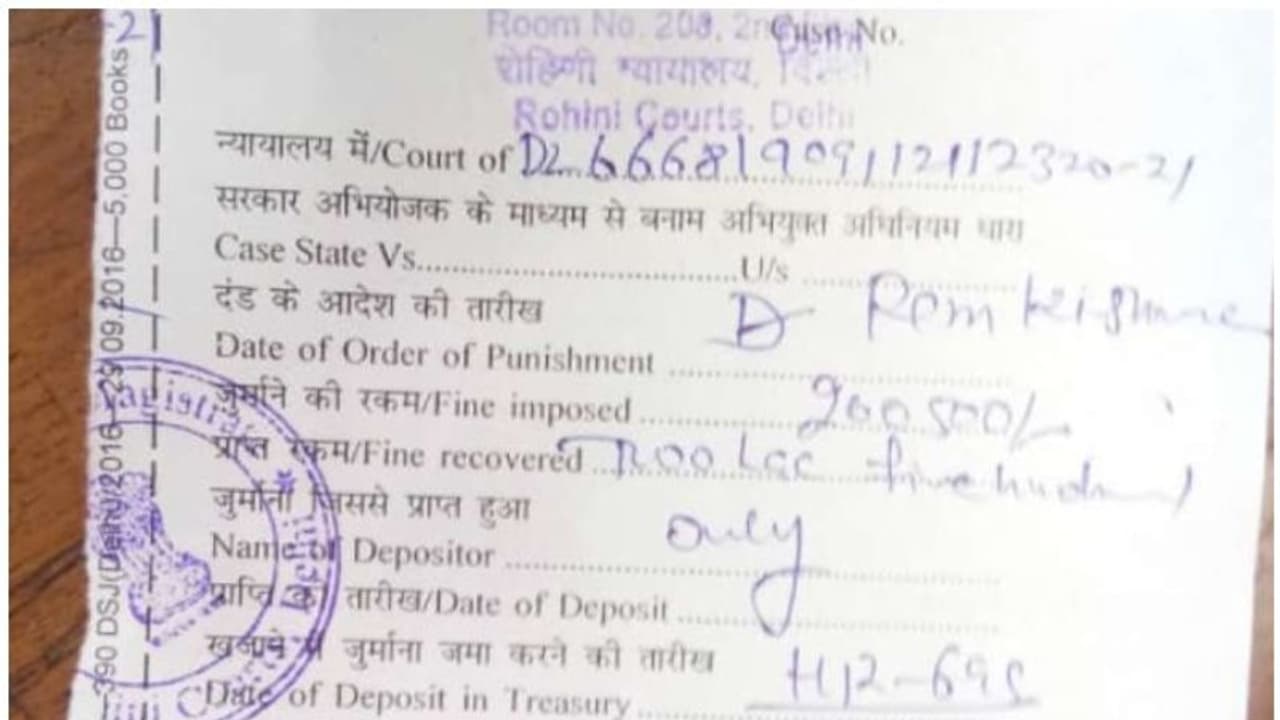 -21
Room No. 208, 2nd
Case No.
Delhi
रोहिणी न्यायालय, दिल्ली
Rohini Courts, Delhi
न्यायालय में/Court of DL 6668190911211232020-21
सरकार अभियोजक के माध्यम से बनाम अभियुक्त अधिनियम धारा
Case State Vs..............................U/s ..............
दंड के आदेश की तारीख
D Ram
Date of Order of Punishment ..............
जुर्माने की रकम/Fine imposed .............. 200500/-
प्राप्त रकम/Fine recovered .............. Two Lac five
जुर्माना जिससे प्राप्त हुआ
only
Name of Depositor ..............
प्राप्ति की तारीख/Date of Deposit ..............
खजाने में जुर्माना जमा करने की तारीख
Date of Deposit in Treasury ..............
390 DSJ(Delhi)/2016—29.09.2016—5,000 Books